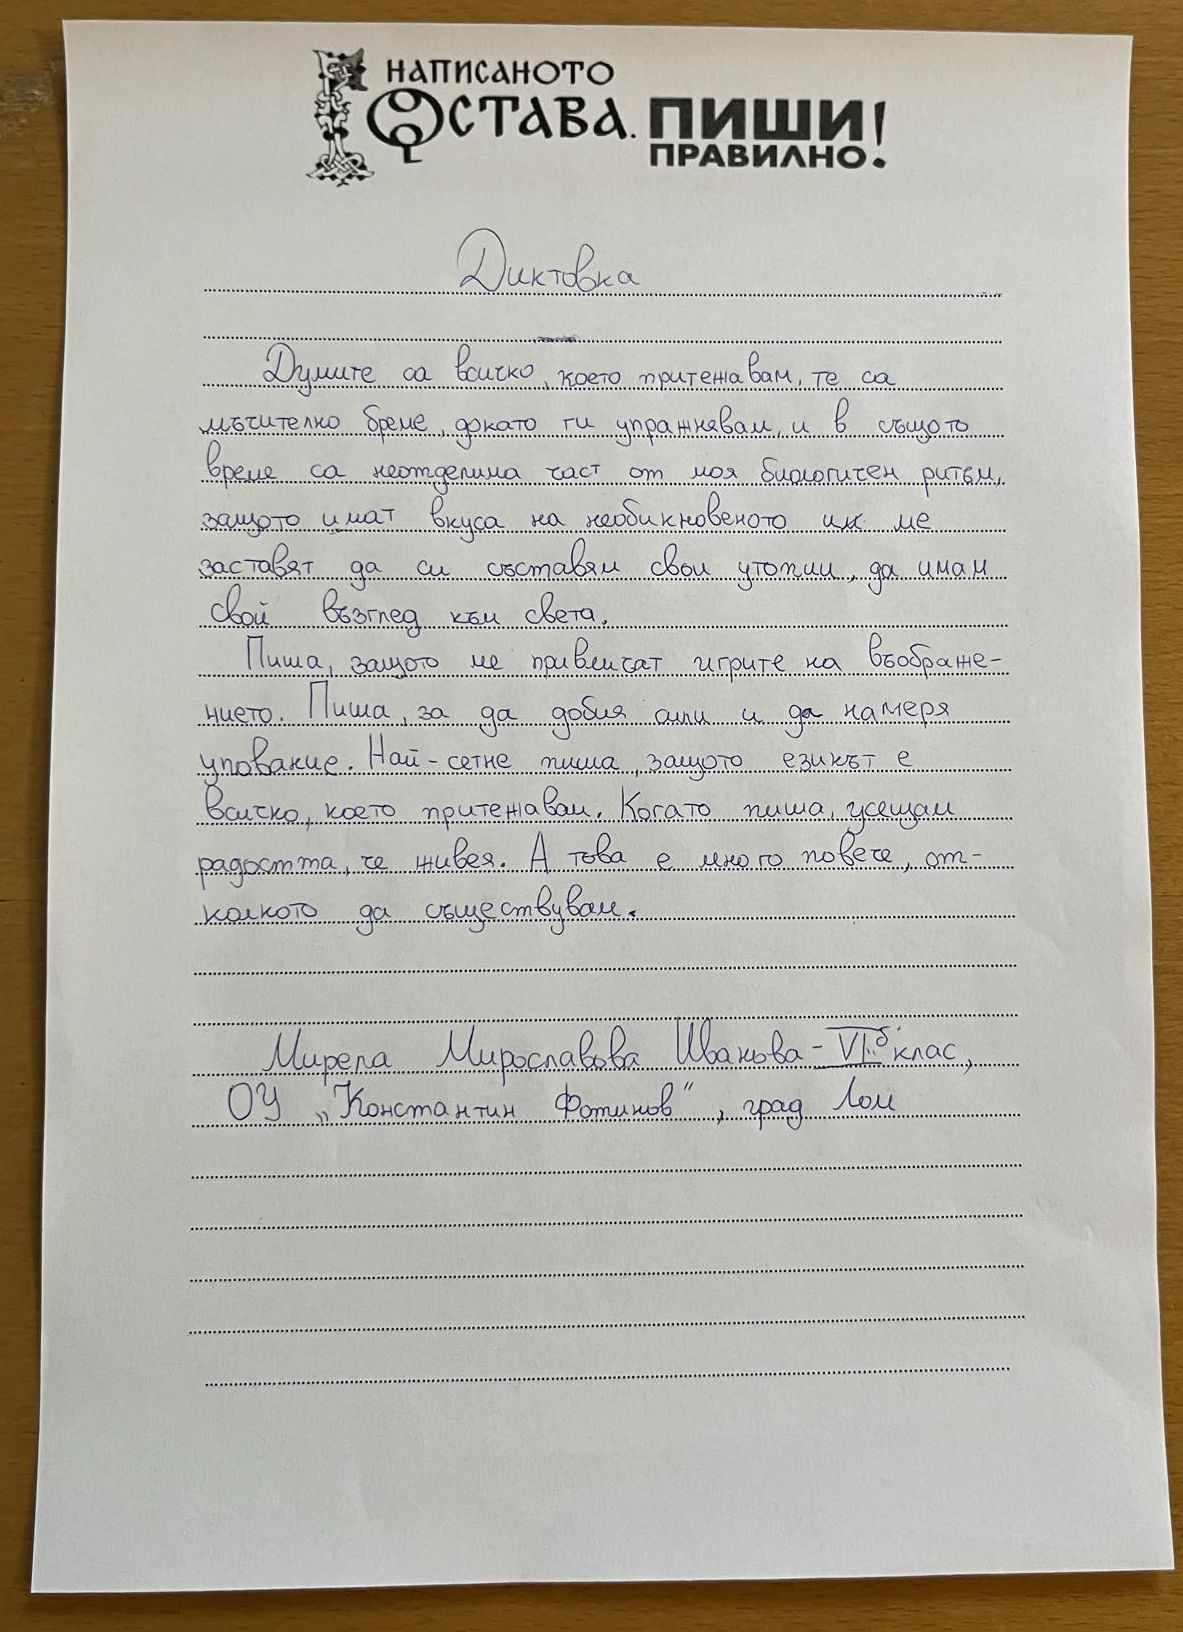 НАПИСАНОТО
ОСТАВА. ПИШИ
ПРАВИЛНО!
Диктовка
Думите са всичко, което притежавам, те са
мъчително бреме, докато ги упражнявам, и в същото
време са неотделима част от моя биологичен ритъм,
защото имат вкуса на необикновеното им ме
заставят да си съставям свои утопии, да имам
свой възглед към света.
Пиша, защото ме привличат игрите на въображе-
нието. Пиша, за да добия сили и да намеря
упование. Най-сетне пиша, защото езикът е
всичко, което притежавам. Когато пиша, усещам
радостта, че живея. А това е много повече, от-
колкото да съществувам.
Мирела Мирославова Иванова - VI б клас,
ОУ „Константин Фотинов", град Лом